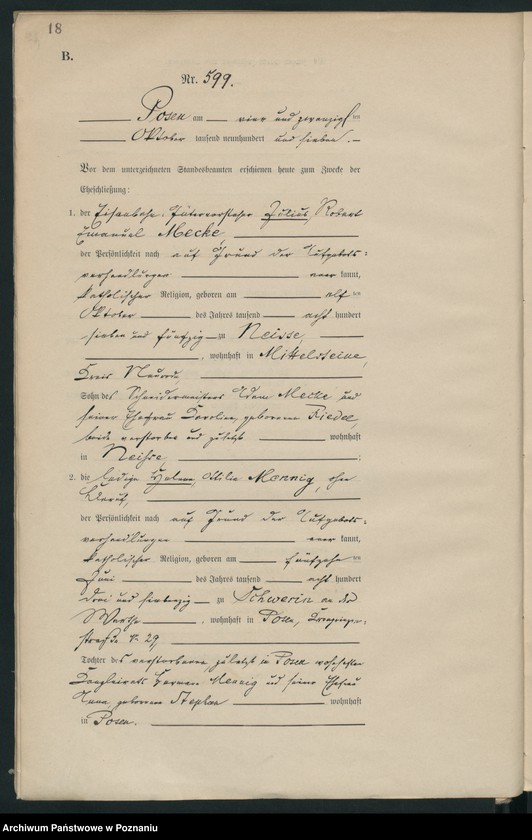 18
B.
Nr. 599.
Posen am vier und zwanzigsten
Oktober tausend neunhundert und sieben.
Vor dem unterzeichneten Standesbeamten erschienen heute zum Zwecke der
Eheschließung:
1. der Eisenbahn-Gütervorsteher Julius Robert
Emanuel Mecke
der Persönlichkeit nach auf Grund der Aufgebots-
verhandlungen anerkannt,
katholischer Religion, geboren am elften
Oktober des Jahres tausend acht hundert
sieben und fünfzig zu Neisse,
, wohnhaft in Mittelsteine,
Kreis Neurode,
Sohn des Schneidermeisters Adam Mecke und
seiner Ehefrau Karoline, geborenen Riedel,
beide verstorben und zuletzt wohnhaft
in Neisse ;
2. die ledige Helene, Ottilie Mennig, ohne
Beruf,
der Persönlichkeit nach auf Grund der Aufgebots-
verhandlungen anerkannt,
katholischer Religion, geboren am fünfzehnten
Juni des Jahres tausend acht hundert
drei und siebenzig zu Schwerin an der
Warthe , wohnhaft in Posen,
straße No 29,
Tochter des verstorbenen, zuletzt in Posen wohnhaften
Kanzleirats Herman Mennig und seiner Ehefrau
Anna geborenen Stephan wohnhaft
in Posen.
Archiwum Państwowe w Poznaniu